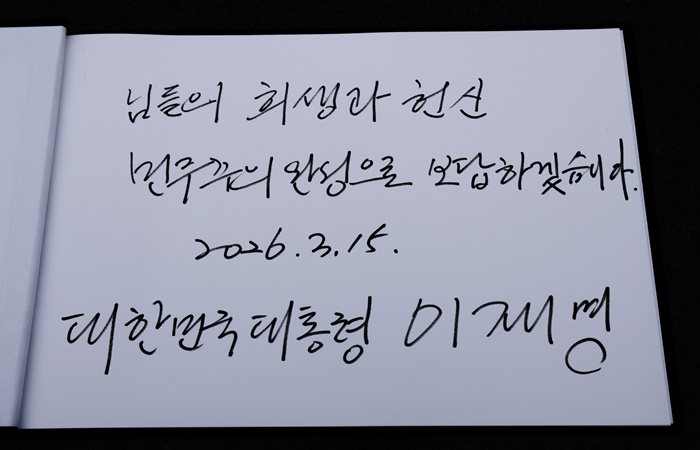 님들의 희생과 헌신
민주주의 완성으로 보답하겠습니다.
2026.3.15.
대한민국 대통령 이재명